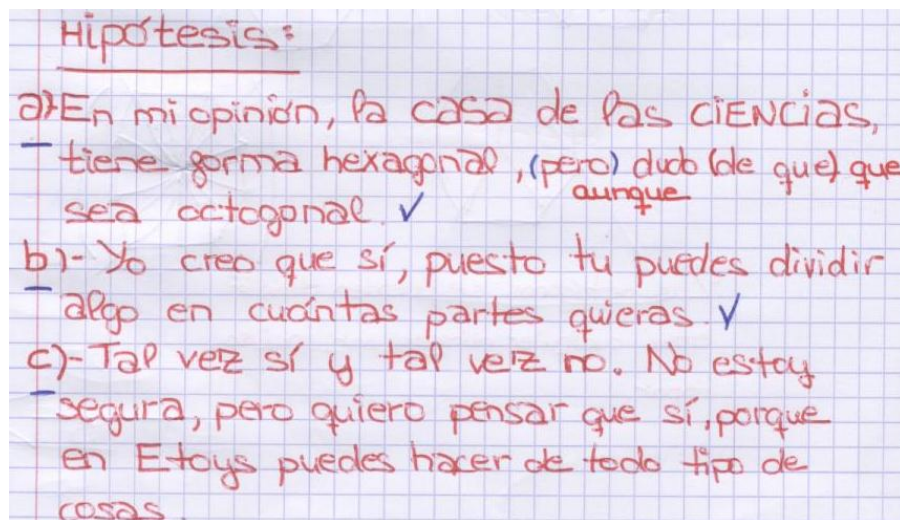 Hipótesis:
a) En mi opinión, la casa de las CiENCias,
tiene forma hexagonal, (pero) dudo (de que) que
aunque
sea octogonal. √
b)- Yo creo que sí, puesto tu puedes dividir
algo en cuántas partes quieras. √
c)- Tal vez sí y tal vez no. No estoy
segura, pero quiero pensar que sí, porque
en Etoys puedes hacer de todo tipo de
cosas.